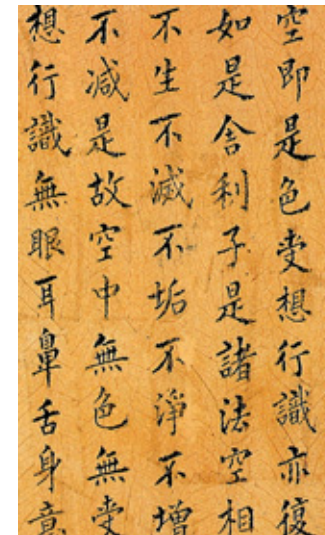 空即是色受想行識亦復
如是舍利子是諸法空相
不生不滅不垢不淨不增
不減是故空中無色無受
想行識無眼耳鼻舌身意